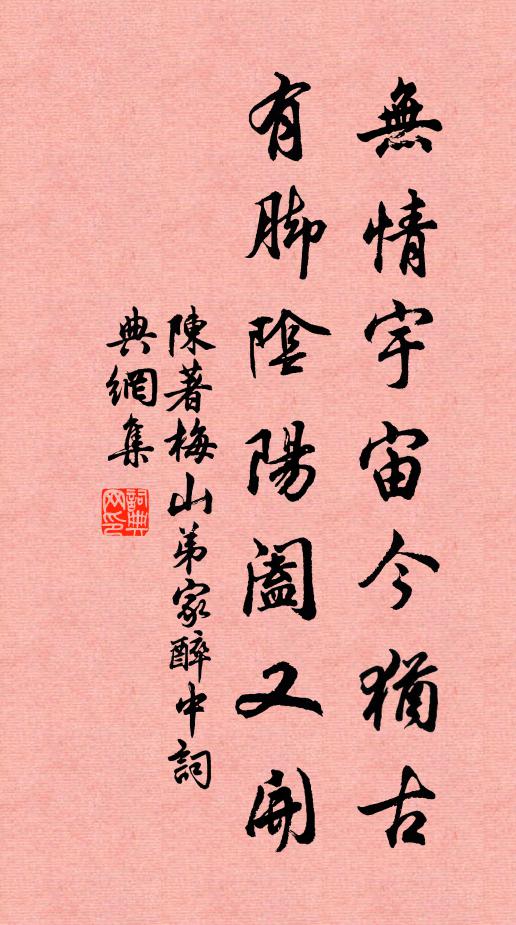 無情宇宙今猶古
有脚陰陽闔又開
陳著梅山弟家醉中詞
典網集
詞典網印